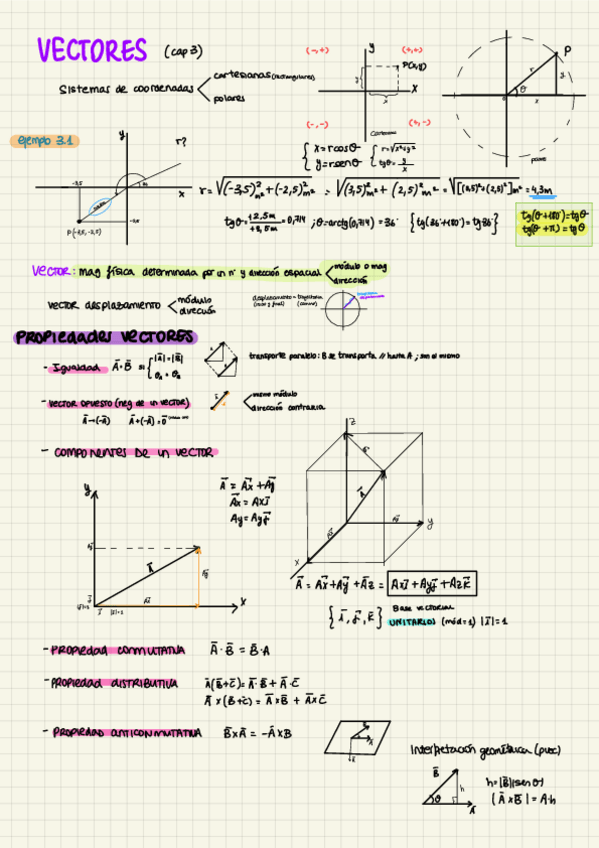 VECTORES (cap 3)
Sistemas de coordenadas
cartesianas (rectangulares)
polares
(-,+)
(+,+)
(-,-)
(+,-)
y
P(x,y)
x
Cartesianas
P
r
θ
x
y
polares
x = r cos θ
y = r sen θ
r = √x²+y²
tgθ = y/x
ejemplo 3.1
y
r?
x
-3,5
-2,5
P(-3,5, -2,5)
r = √(-3,5)²m² + (-2,5)²m² = √(3,5)²m² + (2,5)²m² = √[(3,5)²+(2,5)²]m² = 4,3m
tgθ = +2,5m/+3,5m = 0,714 ; θ = arctg(0,714) = 36° {tg(36+180°) = tg36°}
tg(θ+180°) = tgθ
tg(θ+π) = tgθ
VECTOR: mag física determinada por un nº y dirección espacial
módulo o mag
dirección
VECTOR desplazamiento
módulo
dirección
desplazamiento ≠ trayectoria
PROPIEDADES VECTORES
- Igualdad A⃗=B⃗ si |A⃗| = |B⃗|
θA = θB
transporte paralelo: B se transporta // hasta A ; son el mismo
- VECTOR OPUESTO (neg de un vector)
mismo módulo
dirección contraria
A⃗→(-A⃗) A⃗+(-A⃗)=0⃗
- COMPONENTES DE UN VECTOR
A⃗ = A⃗x + A⃗y
A⃗x = Ax i⃗
A⃗y = Ay j⃗
y
A⃗
x
z
A⃗
y
x
A⃗ = A⃗x + A⃗y + A⃗z = Ax i⃗ + Ay j⃗ + Az k⃗
{i⃗, j⃗, k⃗} Base vectorial
UNITARIOS (mód=1) |i⃗|=1
- PROPIEDAD CONMUTATIVA A⃗·B⃗ = B⃗·A⃗
- PROPIEDAD DISTRIBUTIVA A⃗(B⃗+C⃗) = A⃗·B⃗ + A⃗·C⃗
A⃗×(B⃗+C⃗) = A⃗×B⃗ + A⃗×C⃗
- PROPIEDAD ANTICONMUTATIVA B⃗×A⃗ = -A⃗×B⃗
Interpretación geométrica (pvec)
B⃗
h
θ
A⃗
h = |B⃗| |sen θ|
|A⃗×B⃗| = A·h